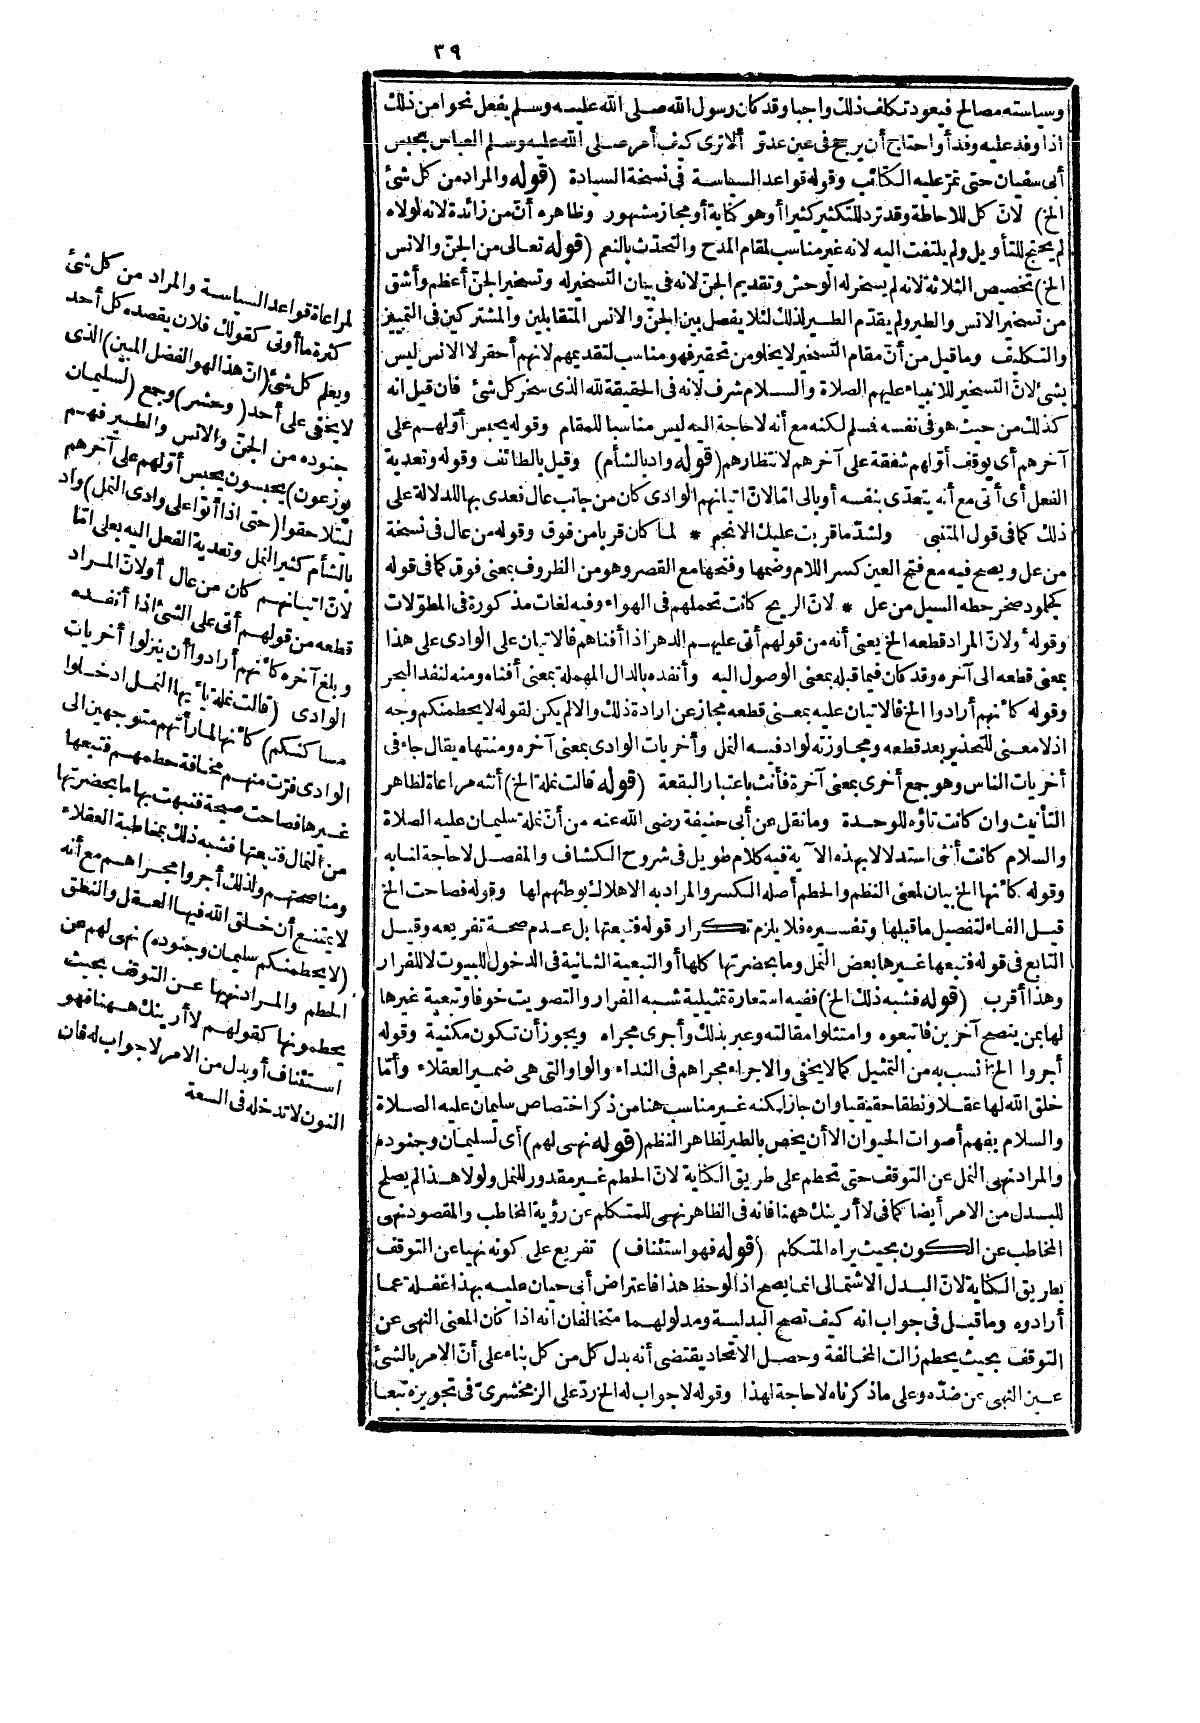 ٣٩
وسياسته مصالح فيعود تكلف ذلك واجبا وقد كان رسول الله صلى الله عليه وسلم يفعل نحوا من ذلك
اذا وفد عليه وفد أو احتاج أن يرجح فى عين عدوّ ألا ترى كيف أمر صلى الله عليه وسلم العباس بحبس
أبى سفيان حتى تمرّ عليه الكتائب وقوله قواعد السياسة فى نسخة السيادة (قوله والمراد من كل شئ
الخ) لانّ كل للاحاطة وقد ترد للتكثير كثيرا أو هو كناية أو مجاز مشهور وظاهره أنّ من زائدة لانه لولاه
لم يحتج للتأويل ولم يلتفت اليه لانه غير مناسب لمقام المدح والتحدّث بالنعم (قوله تعالى من الجنّ والانس
الخ) تخصيص الثلاثة لانه لم يسخر له الوحش وتقديم الجنّ لانه فى بيان التسخير له وتسخير الجنّ أعظم وأشق
من تسخير الانس والطير ولم يقدّم الطير لذلك لئلا يفصل بين الجنّ والانس المتقابلين والمشتركين فى التمييز
والتكليف وما قيل من أنّ مقام التسخير لا يخلو من تحقير فهو مناسب لتقديمهم لانهم أحقر لا الانس ليس
بشئ لانّ التسخير للانبياء عليهم الصلاة والسلام شرف لانه فى الحقيقة لله الذى سخر كل شئ فان قيل انه
كذلك من حيث هو فى نفسه فسلم لكنه مع أنه لا حاجة اليه ليس مناسبا للمقام وقوله يحبس أوّلهم على
آخرهم أى يوقف أوّلهم شفقة على آخرهم لانتظارهم (قوله واد بالشأم) وقيل بالطائف وقوله وتعدية
الفعل أى أتى مع أنه يتعدّى بنفسه أو بالى امّا لانّ اتيانهم الوادى كان من جانب عال فعدى بها للدلالة على
ذلك كما فى قول المتنبى ولشدّ ما قربت عليك الانجم * لما كان قربا من فوق وقوله من عال فى نسخة
من عل ويصح فيه مع فتح العين كسر اللام وضمها وفتحها مع القصر وهو من الظروف بمعنى فوق كما فى قوله
كجلمود صخر حطه السيل من عل * لانّ الريح كانت تحملهم فى الهواء وفيه لغات مذكورة فى المطوّلات
وقوله أولانّ المراد قطعه الخ يعنى أنه من قولهم أتى عليهم الدهر اذا أفناهم فالاتيان على الوادى على هذا
بمعنى قطعه الى آخره وقد كان فيما قبله بمعنى الوصول اليه وأنفده بالدال المهملة بمعنى أفناه ومنه لنفد البحر
وقوله كأنهم أرادوا الخ فالاتيان عليه بمعنى قطعه مجاز عن ارادة ذلك والالم يكن لقوله لا يحطمنكم وجه
اذلا معنى للتحذير بعد قطعه ومجاوزته لواد فيه النمل وأخريات الوادى بمعنى آخره ومنتهاه يقال جاء فى
أخريات الناس وهو جمع أخرى بمعنى آخرة فأنث باعتبار البقعة (قوله قالت نملة الخ) أنثه مراعاة لظاهر
التأنيث وان كانت تاؤه للوحدة وما نقل عن أبى حنيفة رضى الله عنه من أنّ نملة سليمان عليه الصلاة
والسلام كانت أنثى استدلالا بهذه الآية فيه كلام طويل فى شروح الكشاف والمفصل لا حاجة لنا به
وقوله كأنها الخ بيان لمعنى النظم والحطم أصله الكسر والمراد به الاهلاك بوطئهم لها وقوله فصاحت الخ
قيل الفاء لتفصيل ما قبلها وتفسيره فلا يلزم تكرار قوله فتبعتها بل عدم صحة تفريعه وقيل
التابع فى قوله فتبعها غيرها بعض النمل وما بحضرتها كلها أو التبعية الثانية فى الدخول للبيوت لا للفرار
وهذا أقرب (قوله فشبه ذلك الخ) ففيه استعارة تمثيلية شبه الفرار والتصويت خوفا وتبعية غيرها
لها بمن ينصح آخرين فاتبعوه وامتثلوا مقالته وعبر بذلك وأجرى مجراه ويجوز أن تكون مكنية وقوله
أجروا الخ أنسب به من التمثيل كما لا يخفى والاجراء مجراهم فى النداء والواو التى هى ضمير العقلاء وأمّا
خلق الله لها عقلا ونطقا حقيقيا وان جاز لكنه غير مناسب هنا من ذكر اختصاص سليمان عليه الصلاة
والسلام بفهم أصوات الحيوان الا أن يخص بالطير لظاهر النظم (قوله نهى لهم) أى لسليمان وجنوده
والمراد نهى النمل عن التوقف حتى تحطم على طريق الكناية لانّ الحطم غير مقدور للنمل ولولا هذا لم يصلح
للبدل من الامر أيضا كما فى لا أرينك ههنا فانه فى الظاهر نهى للمتكلم عن رؤية المخاطب والمقصود نهى
المخاطب عن الكون بحيث يراه المتكلم (قوله فهو استئناف) تفريع على كونه نهيا عن التوقف
بطريق الكناية لانّ البدل الاشتمالى انما يصح اذا لوحظ هذا فاعتراض أبى حيان عليه بهذا غفلة عما
أرادوه وما قيل فى جوابه انه كيف تصح البدلية ومدلولهما متخالفان انه اذا كان المعنى النهى عن
التوقف بحيث يحطم زالت المخالفة وحصل الاتحاد يقتضى أنه بدل كل من كل بناء على أنّ الامر بالشئ
عين النهى عن ضدّه وعلى ما ذكرناه لا حاجة لهذا وقوله لا جواب له الخ ردّ على الزمخشرىّ فى تجويزه تبعا
لمراعاة قواعد السياسة والمراد من كل شئ
كثرة ما أوتى كقولك فلان يقصده كل أحد
ويعلم كل شئ (انّ هذا لهو الفضل المبين) الذى
لا يخفى على أحد (وحشر) وجمع (لسليمان
جنوده من الجنّ والانس والطير فهم
يوزعون) يحبسون بحبس أوّلهم على آخرهم
ليتلاحقوا (حتى اذا أتوا على وادى النمل) واد
بالشأم كثير النمل وتعدية الفعل اليه بعلى امّا
لانّ اتيانهم كان من عال أولانّ المراد
قطعه من قولهم أتى على الشئ اذا أنفده
وبلغ آخره كأنهم أرادوا أن ينزلوا أخريات
الوادى (قالت نملة يا أيها النمل ادخلوا
مساكنكم) كأنها لما رأتهم متوجهين الى
الوادى فرّت منهم مخافة حطمهم فتبعها
غيرها فصاحت صيحة فنبهت بها ما بحضرتها
من النمال فتبعتها فشبه ذلك بمخاطبة العقلاء
ومناصحتهم ولذلك أجروا مجراهم مع أنه
لا يمتنع أن خلق الله فيها العقل والنطق
(لا يحطمنكم سليمان وجنوده) نهى لهم عن
الحطم والمراد نهيها عن التوقف بحيث
يحطمونها كقولهم لا أرينك ههنا فهو
استئناف أو بدل من الامر لا جواب له فان
النون لا تدخله فى السعة